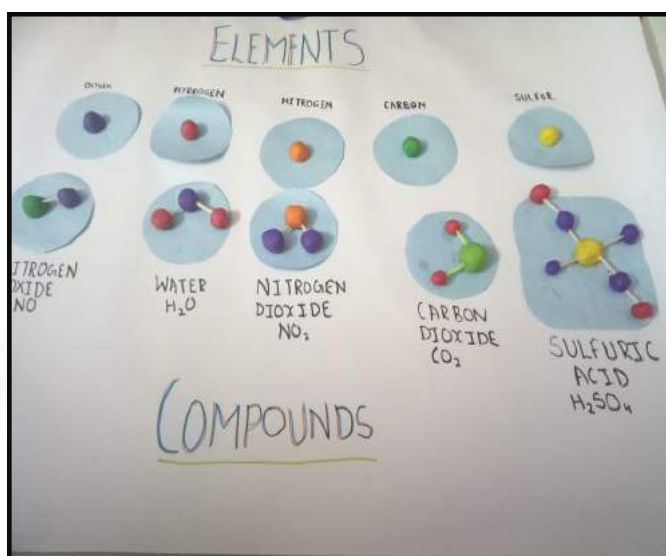 ELEMENTS
OXYGEN
HYDROGEN
NITROGEN
CARBON
SULFUR
ITROGEN
OXIDE
NO
WATER
H₂O
NITROGEN
DIOXIDE
NO₂
CARBON
DIOXIDE
CO₂
SULFURIC
ACID
H₂SO₄
COMPOUNDS